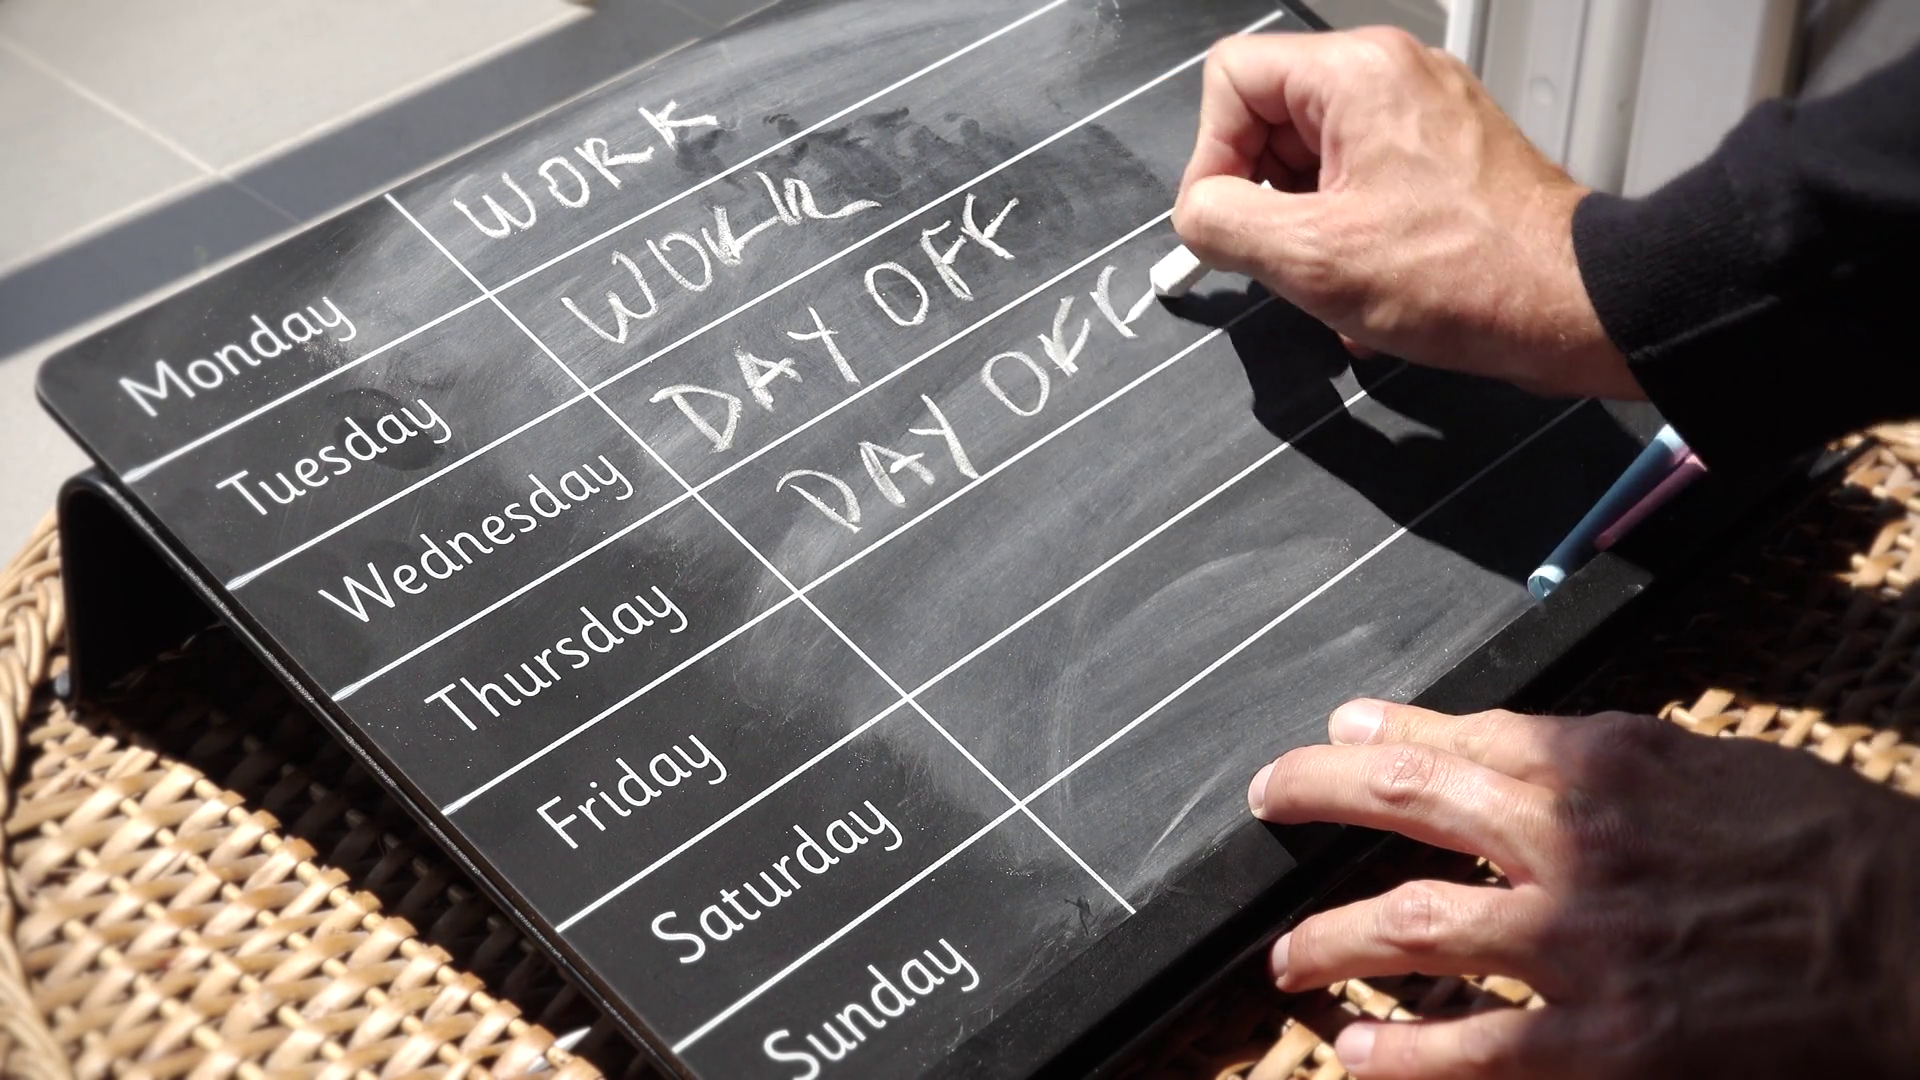 Monday WORK
Tuesday WORK
Wednesday DAY OFF
Thursday DAY OFF
Friday
Saturday
Sunday